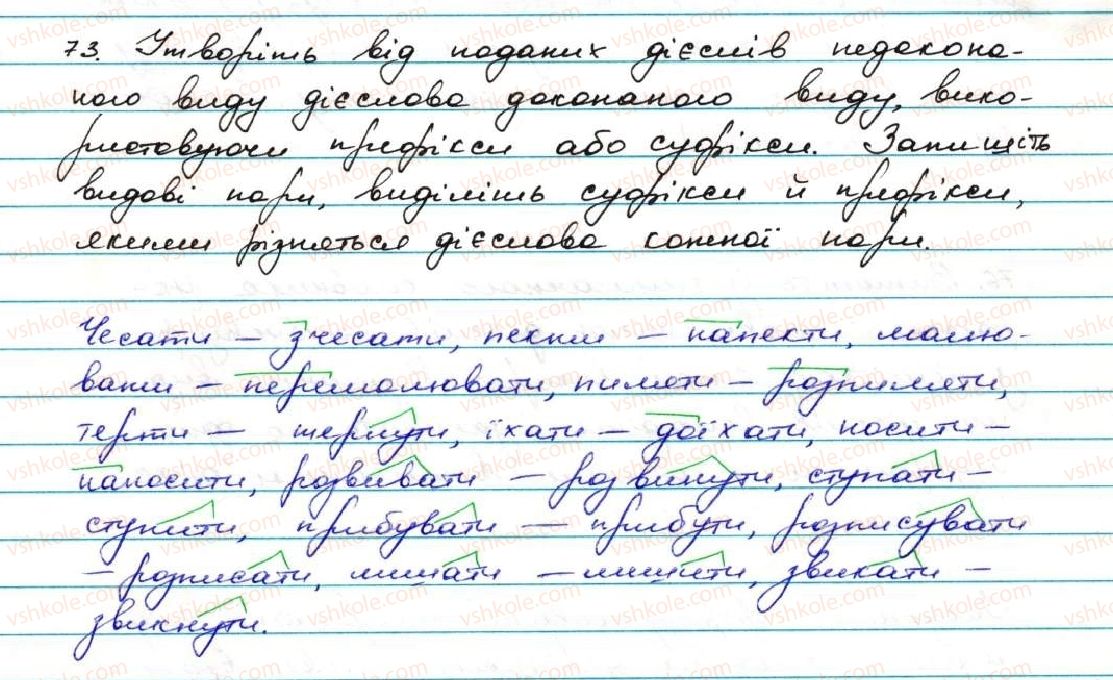 73. Утворіть від поданих дієслів недокона-
ного виду дієслова доконаного виду, вико-
ристовуючи префікси або суфікси. Запишіть
видові пари, виділіть суфікси й префікси,
якими різняться дієслова кожної пари.
Чесати – зчесати, пекти – напекти, малю-
вати – перемалювати, пиляти – розпиляти,
терти – тернути, їхати – доїхати, носити –
наносити, розвивати – розвинути, ступати –
ступити, прибувати – прибути, розписувати
– розписати, лишати – лишити, звикати –
звикнути.